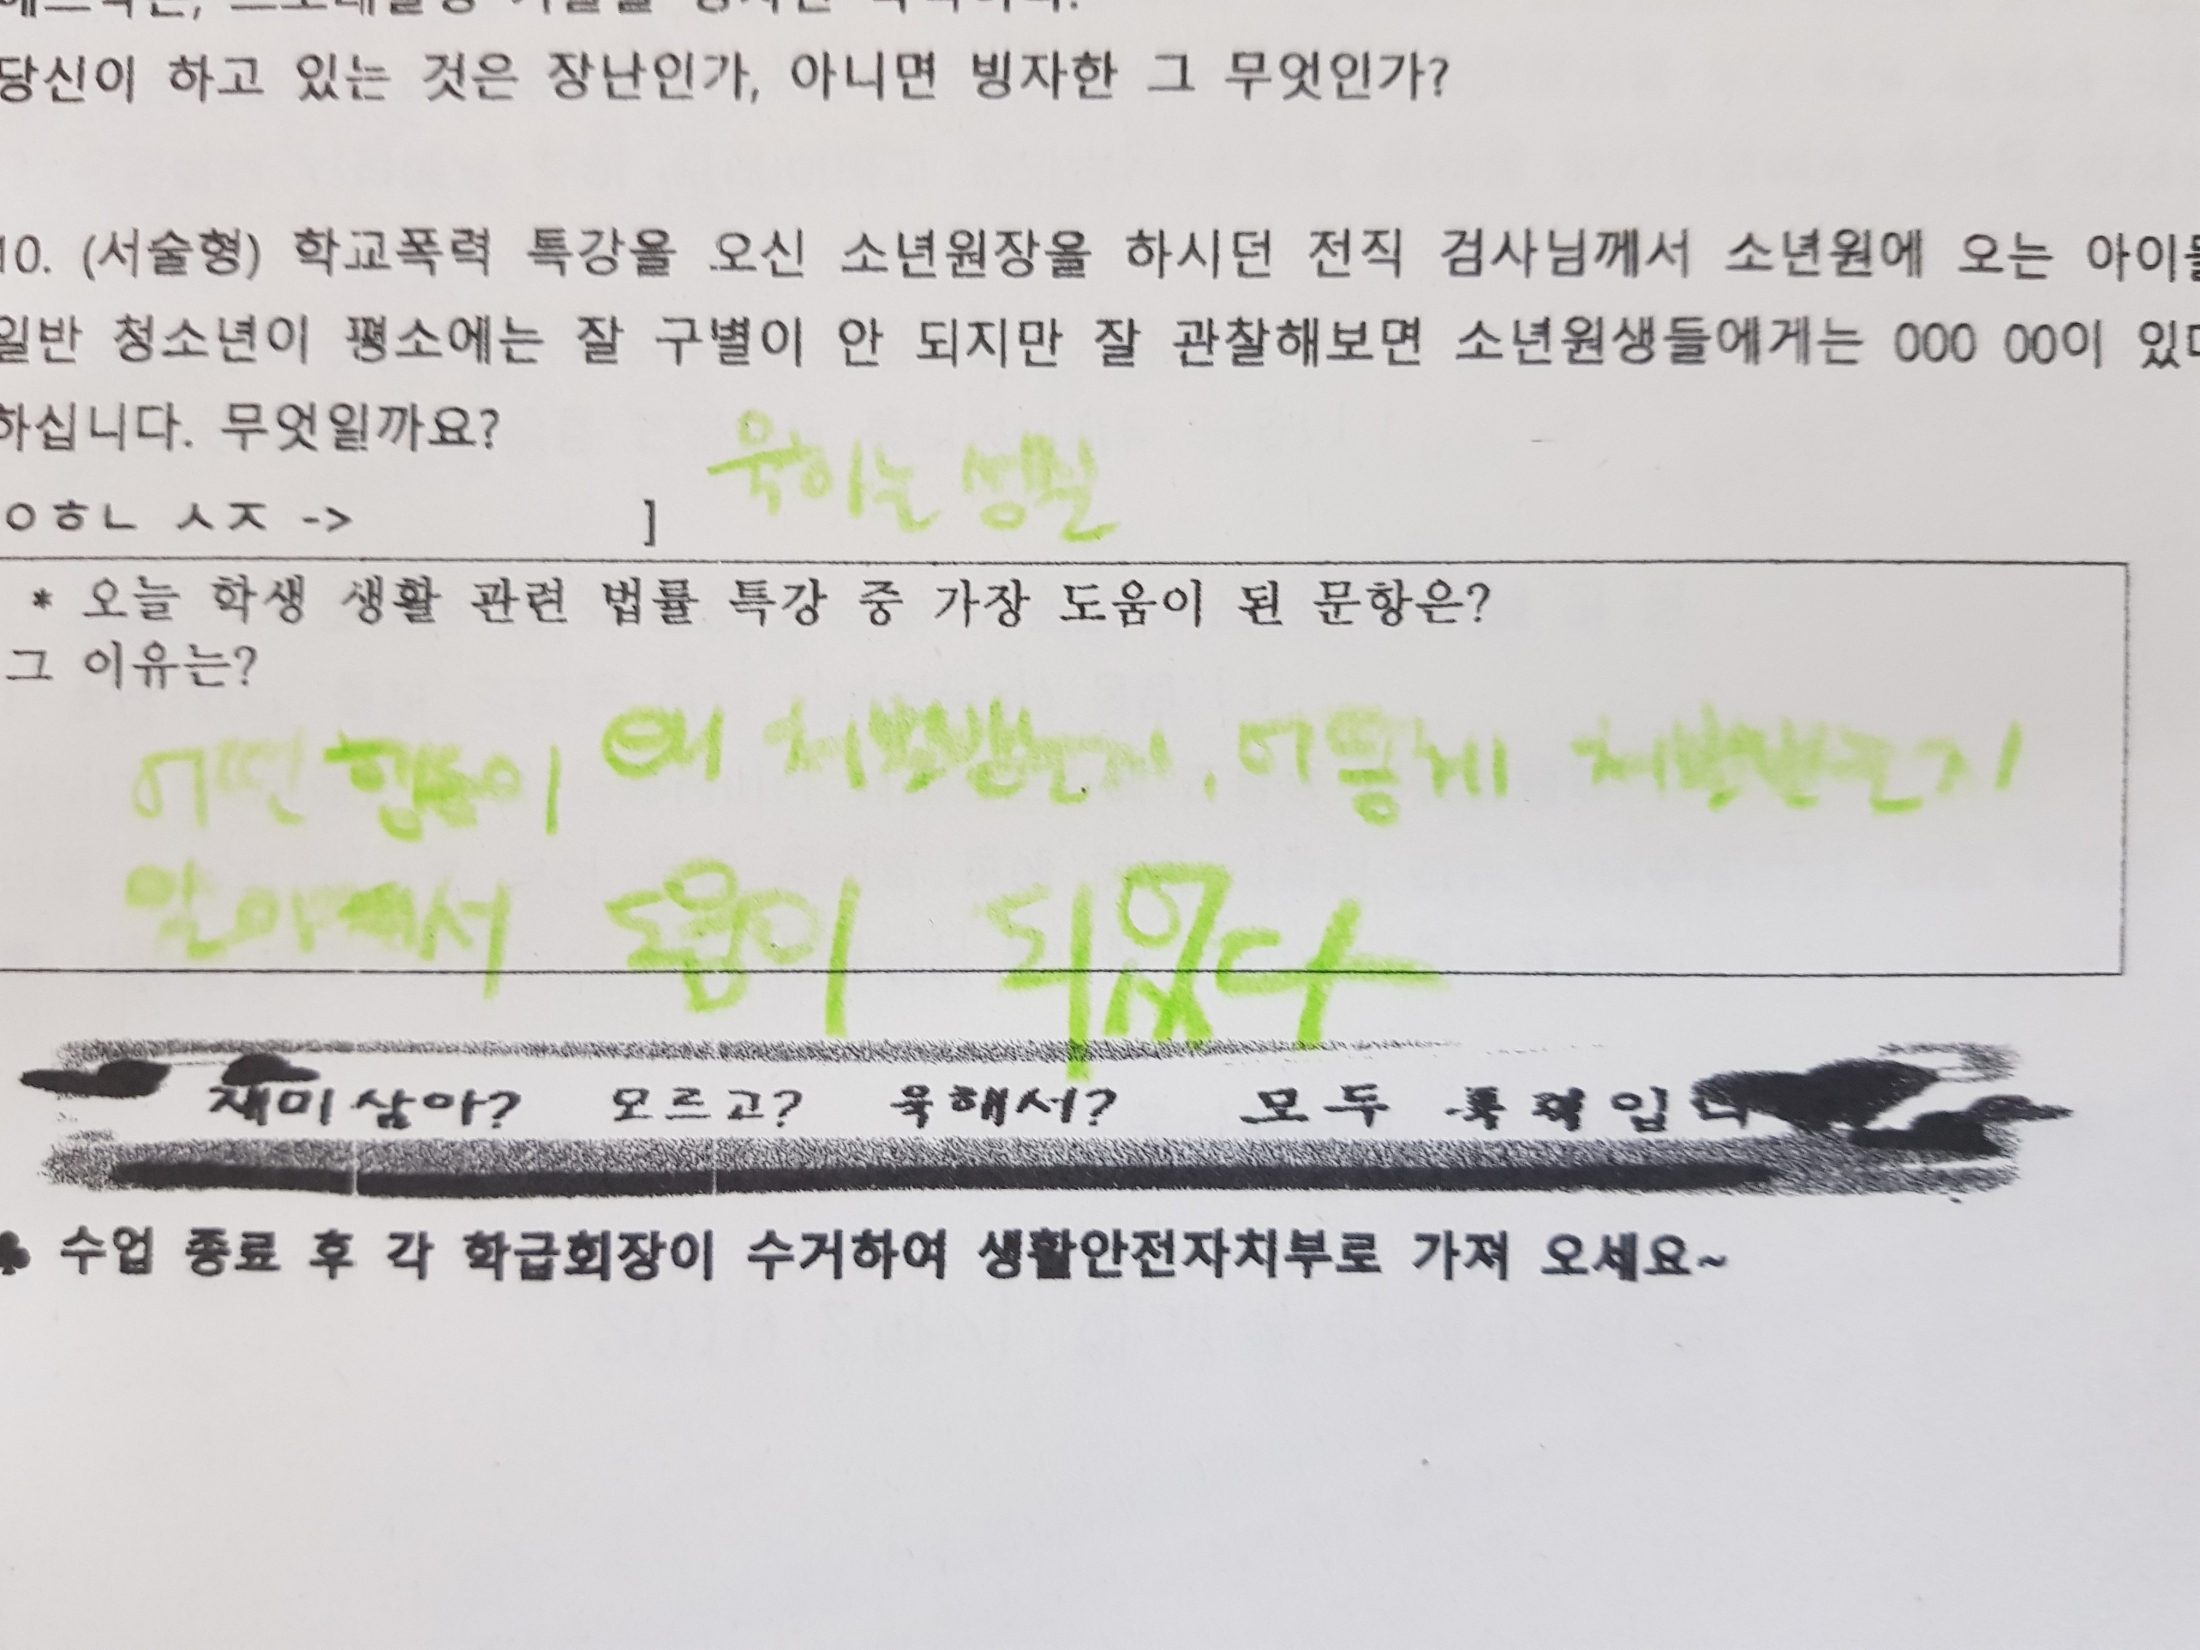 당신이 하고 있는 것은 장난인가, 아니면 빙자한 그 무엇인가?
10. (서술형) 학교폭력 특강을 오신 소년원장을 하시던 전직 검사님께서 소년원에 오는 아이들
일반 청소년이 평소에는 잘 구별이 안 되지만 잘 관찰해보면 소년원생들에게는 OOO OO이 있다
하십니다. 무엇일까요?
욱하는 성질
ㅇㅎㄴ ㅅㅈ -> ]
* 오늘 학생 생활 관련 법률 특강 중 가장 도움이 된 문항은?
그 이유는?
어떤 왜 처벌받는지, 어떻게 처벌받는지
알아서 도움이 되었다
재미삼아? 모르고? 욱해서? 모두 폭력입니
♣ 수업 종료 후 각 학급회장이 수거하여 생활안전자치부로 가져 오세요~